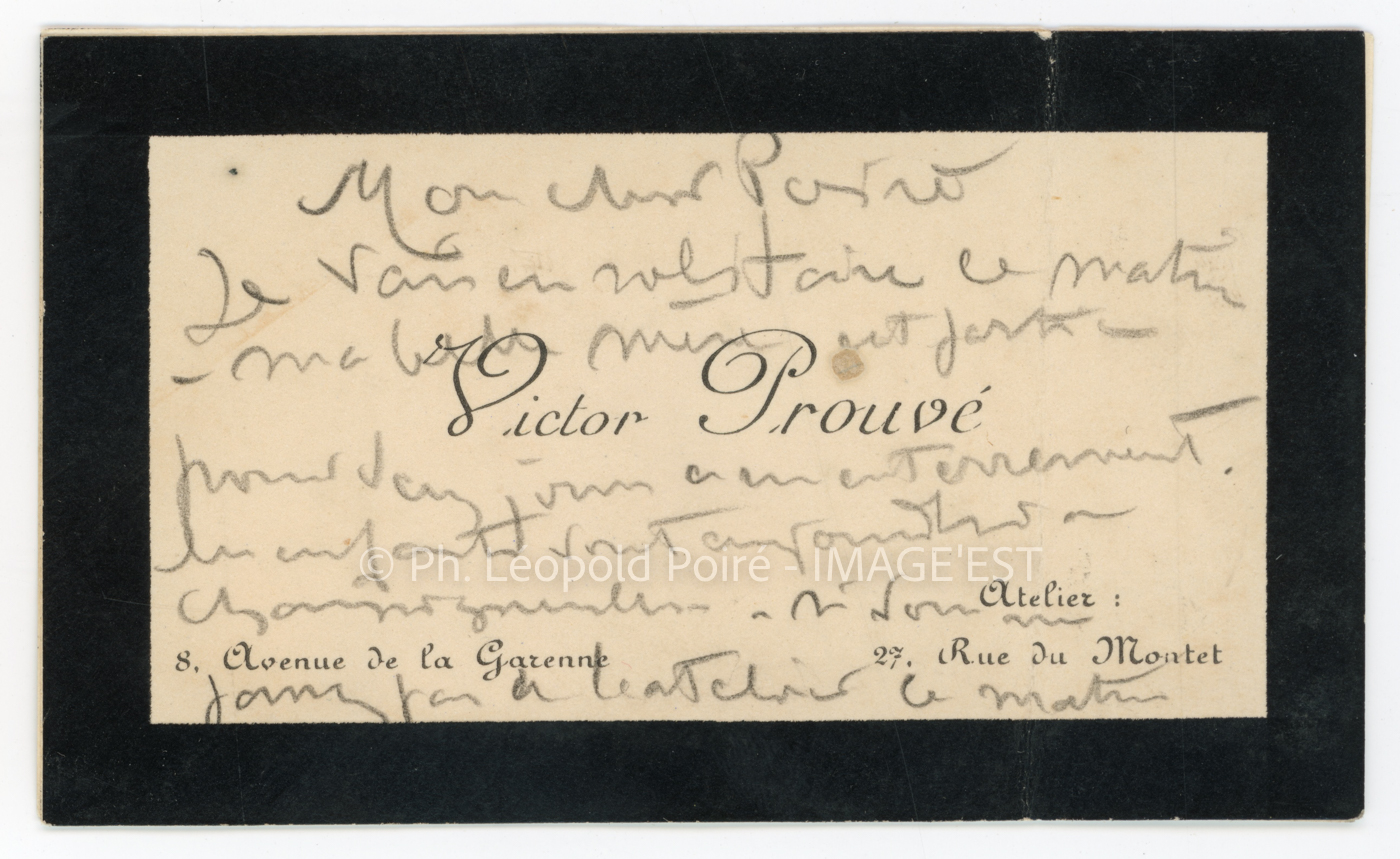 Mon cher Poiré
Je vais en solitaire ce matin
- ma belle mère est partie
Victor Prouvé
pour deux jours à un enterrement.
les enfants sont aujourd'hui à
© Ph. Léopold Poiré - IMAGE'EST
Champigneulles - Ne
Atelier :
8, Avenue de la Garenne
27, Rue du Montet
pas à l'atelier ce matin